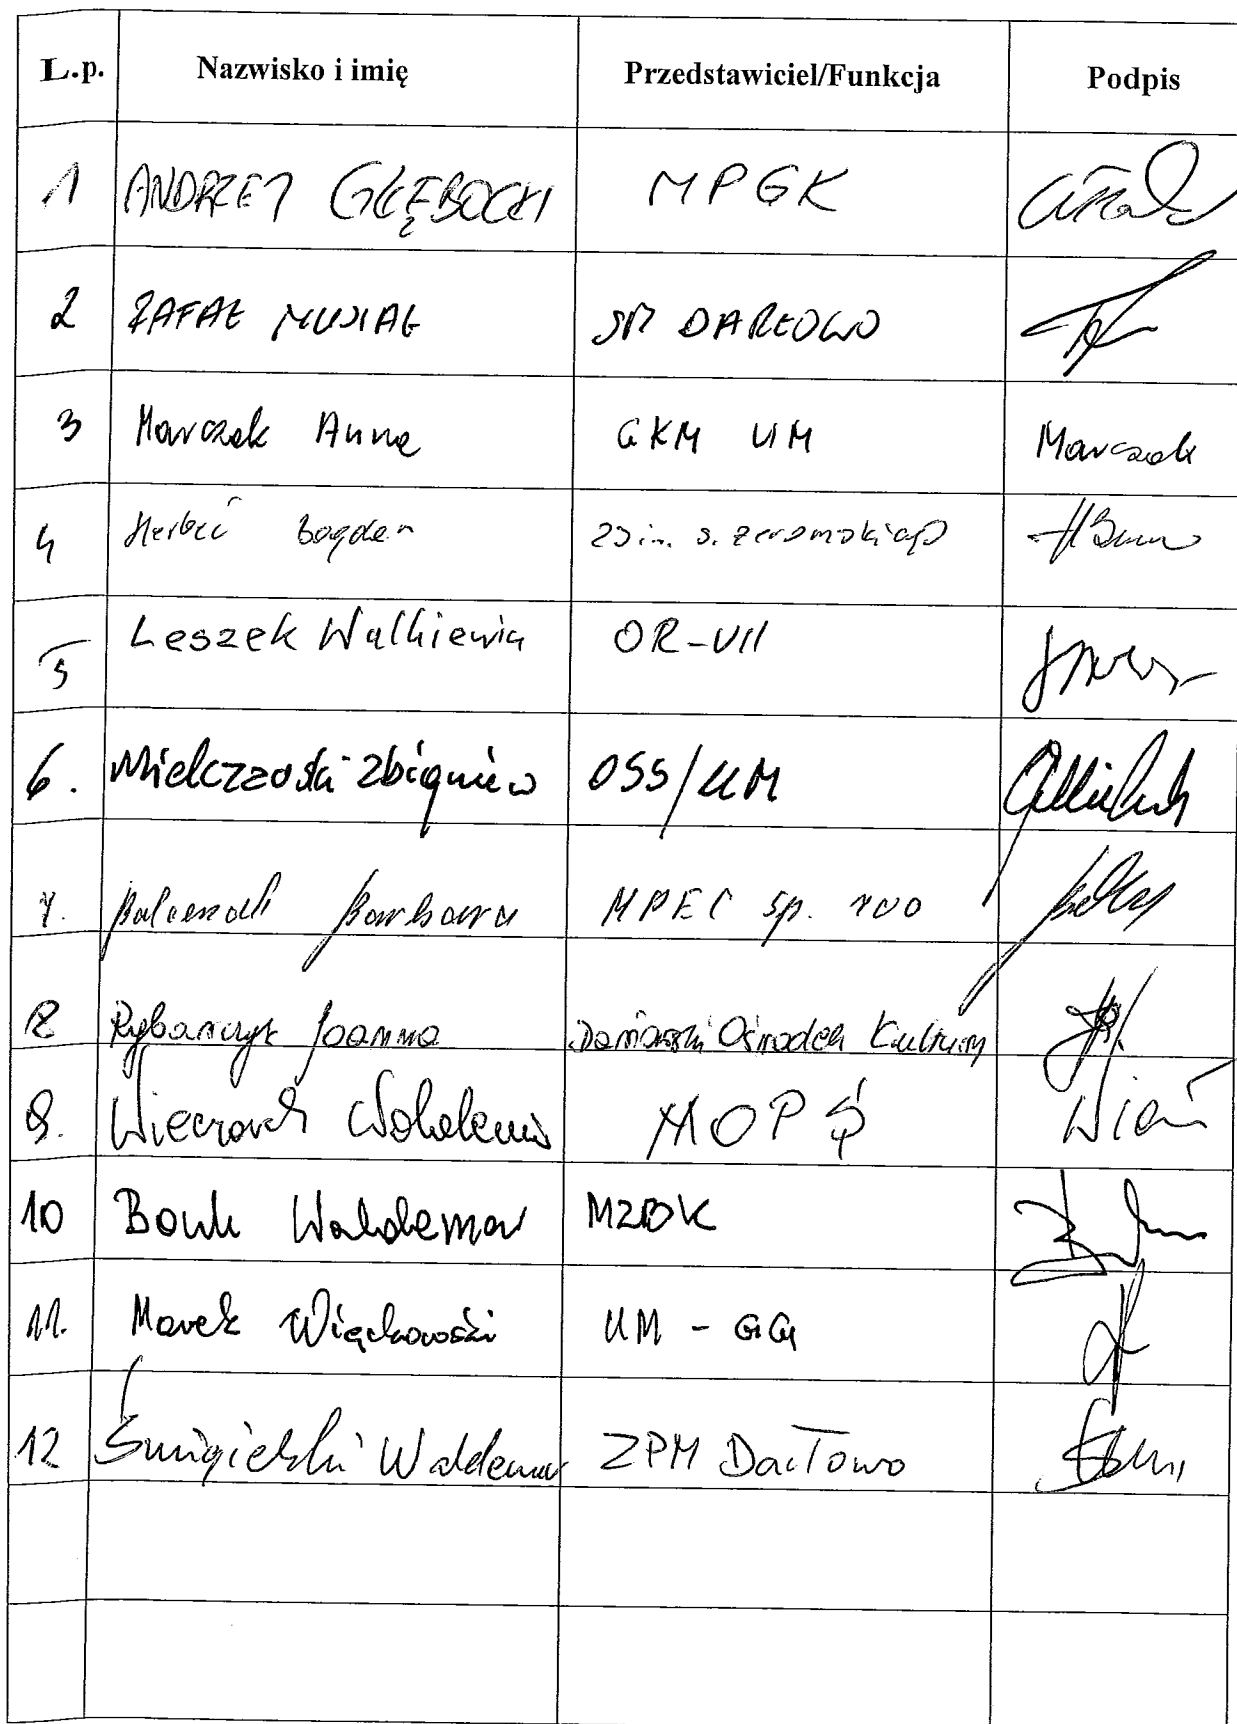 L.p. Nazwisko i imię Przedstawiciel/Funkcja Podpis
1 ANDRZEJ GŁĘBOCKI MPGK
2 RAFAŁ MUSIAŁ SM DARŁOWO
3 Marczak Anna GKM UM Marczak
4 Herbeć Bogdan ZS im. S. Żeromskiego
5 Leszek Walkiewicz OR-VII
6. Mielczarski Zbigniew OSS/UM
7. Balcerzak Barbara MPEC sp. zoo
8 Rybarczyk Joanna Darłowski Ośrodek Kultury
9. Wieczorek MOPS
10 Bonk Waldemar MZBK
11. Marek Więckowski UM - GG
12 Śmigielski Waldemar ZPM Darłowo